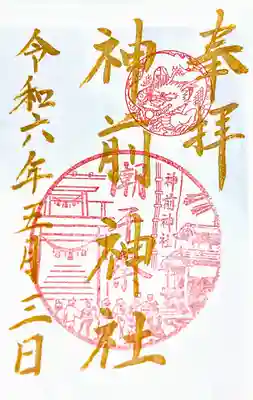 奉拝
神前神社
神前神社
令和六年五月三日